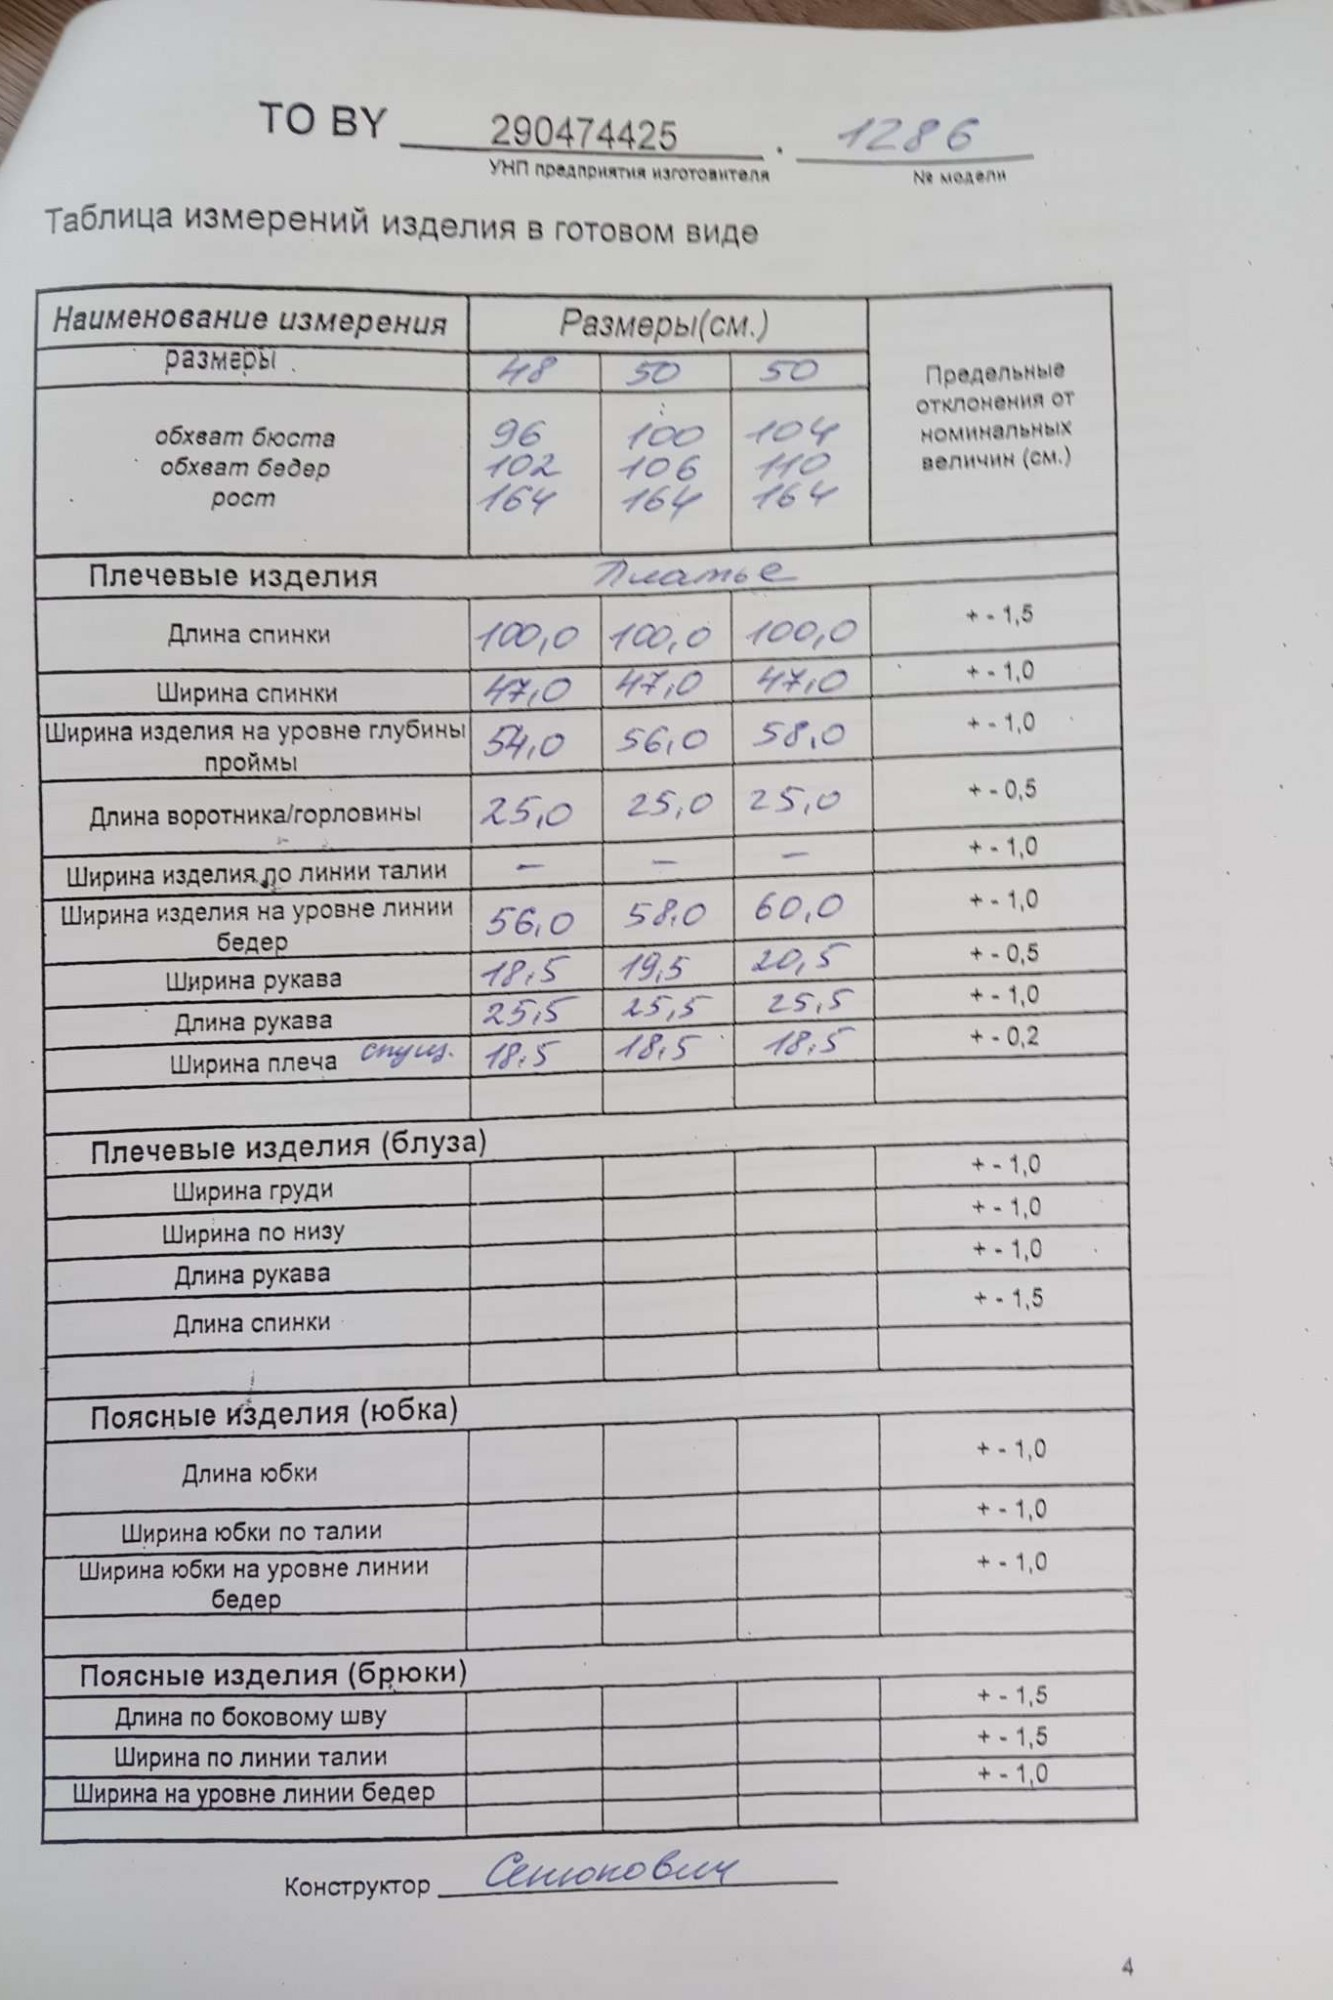 ТО BY 290474425 . 1286
УНП предприятия изготовителя № модели
Таблица измерений изделия в готовом виде
Наименование измерения Размеры(см.) Предельные отклонения от номинальных величин (см.)
размеры 48 50 50
обхват бюста 96 100 104
обхват бедер 102 106 110
рост 164 164 164
Плечевые изделия Платье
Длина спинки 100,0 100,0 100,0 + - 1,5
Ширина спинки 47,0 47,0 47,0 + - 1,0
Ширина изделия на уровне глубины проймы 54,0 56,0 58,0 + - 1,0
Длина воротника/горловины 25,0 25,0 25,0 + - 0,5
Ширина изделия по линии талии – – – + - 1,0
Ширина изделия на уровне линии бедер 56,0 58,0 60,0 + - 1,0
Ширина рукава 18,5 19,5 20,5 + - 0,5
Длина рукава 25,5 25,5 25,5 + - 1,0
Ширина плеча спущ. 18,5 18,5 18,5 + - 0,2
Плечевые изделия (блуза)
Ширина груди + - 1,0
Ширина по низу + - 1,0
Длина рукава + - 1,0
Длина спинки + - 1,5
Поясные изделия (юбка)
Длина юбки + - 1,0
Ширина юбки по талии + - 1,0
Ширина юбки на уровне линии бедер + - 1,0
Поясные изделия (брюки)
Длина по боковому шву + - 1,5
Ширина по линии талии + - 1,5
Ширина на уровне линии бедер + - 1,0
Конструктор
4